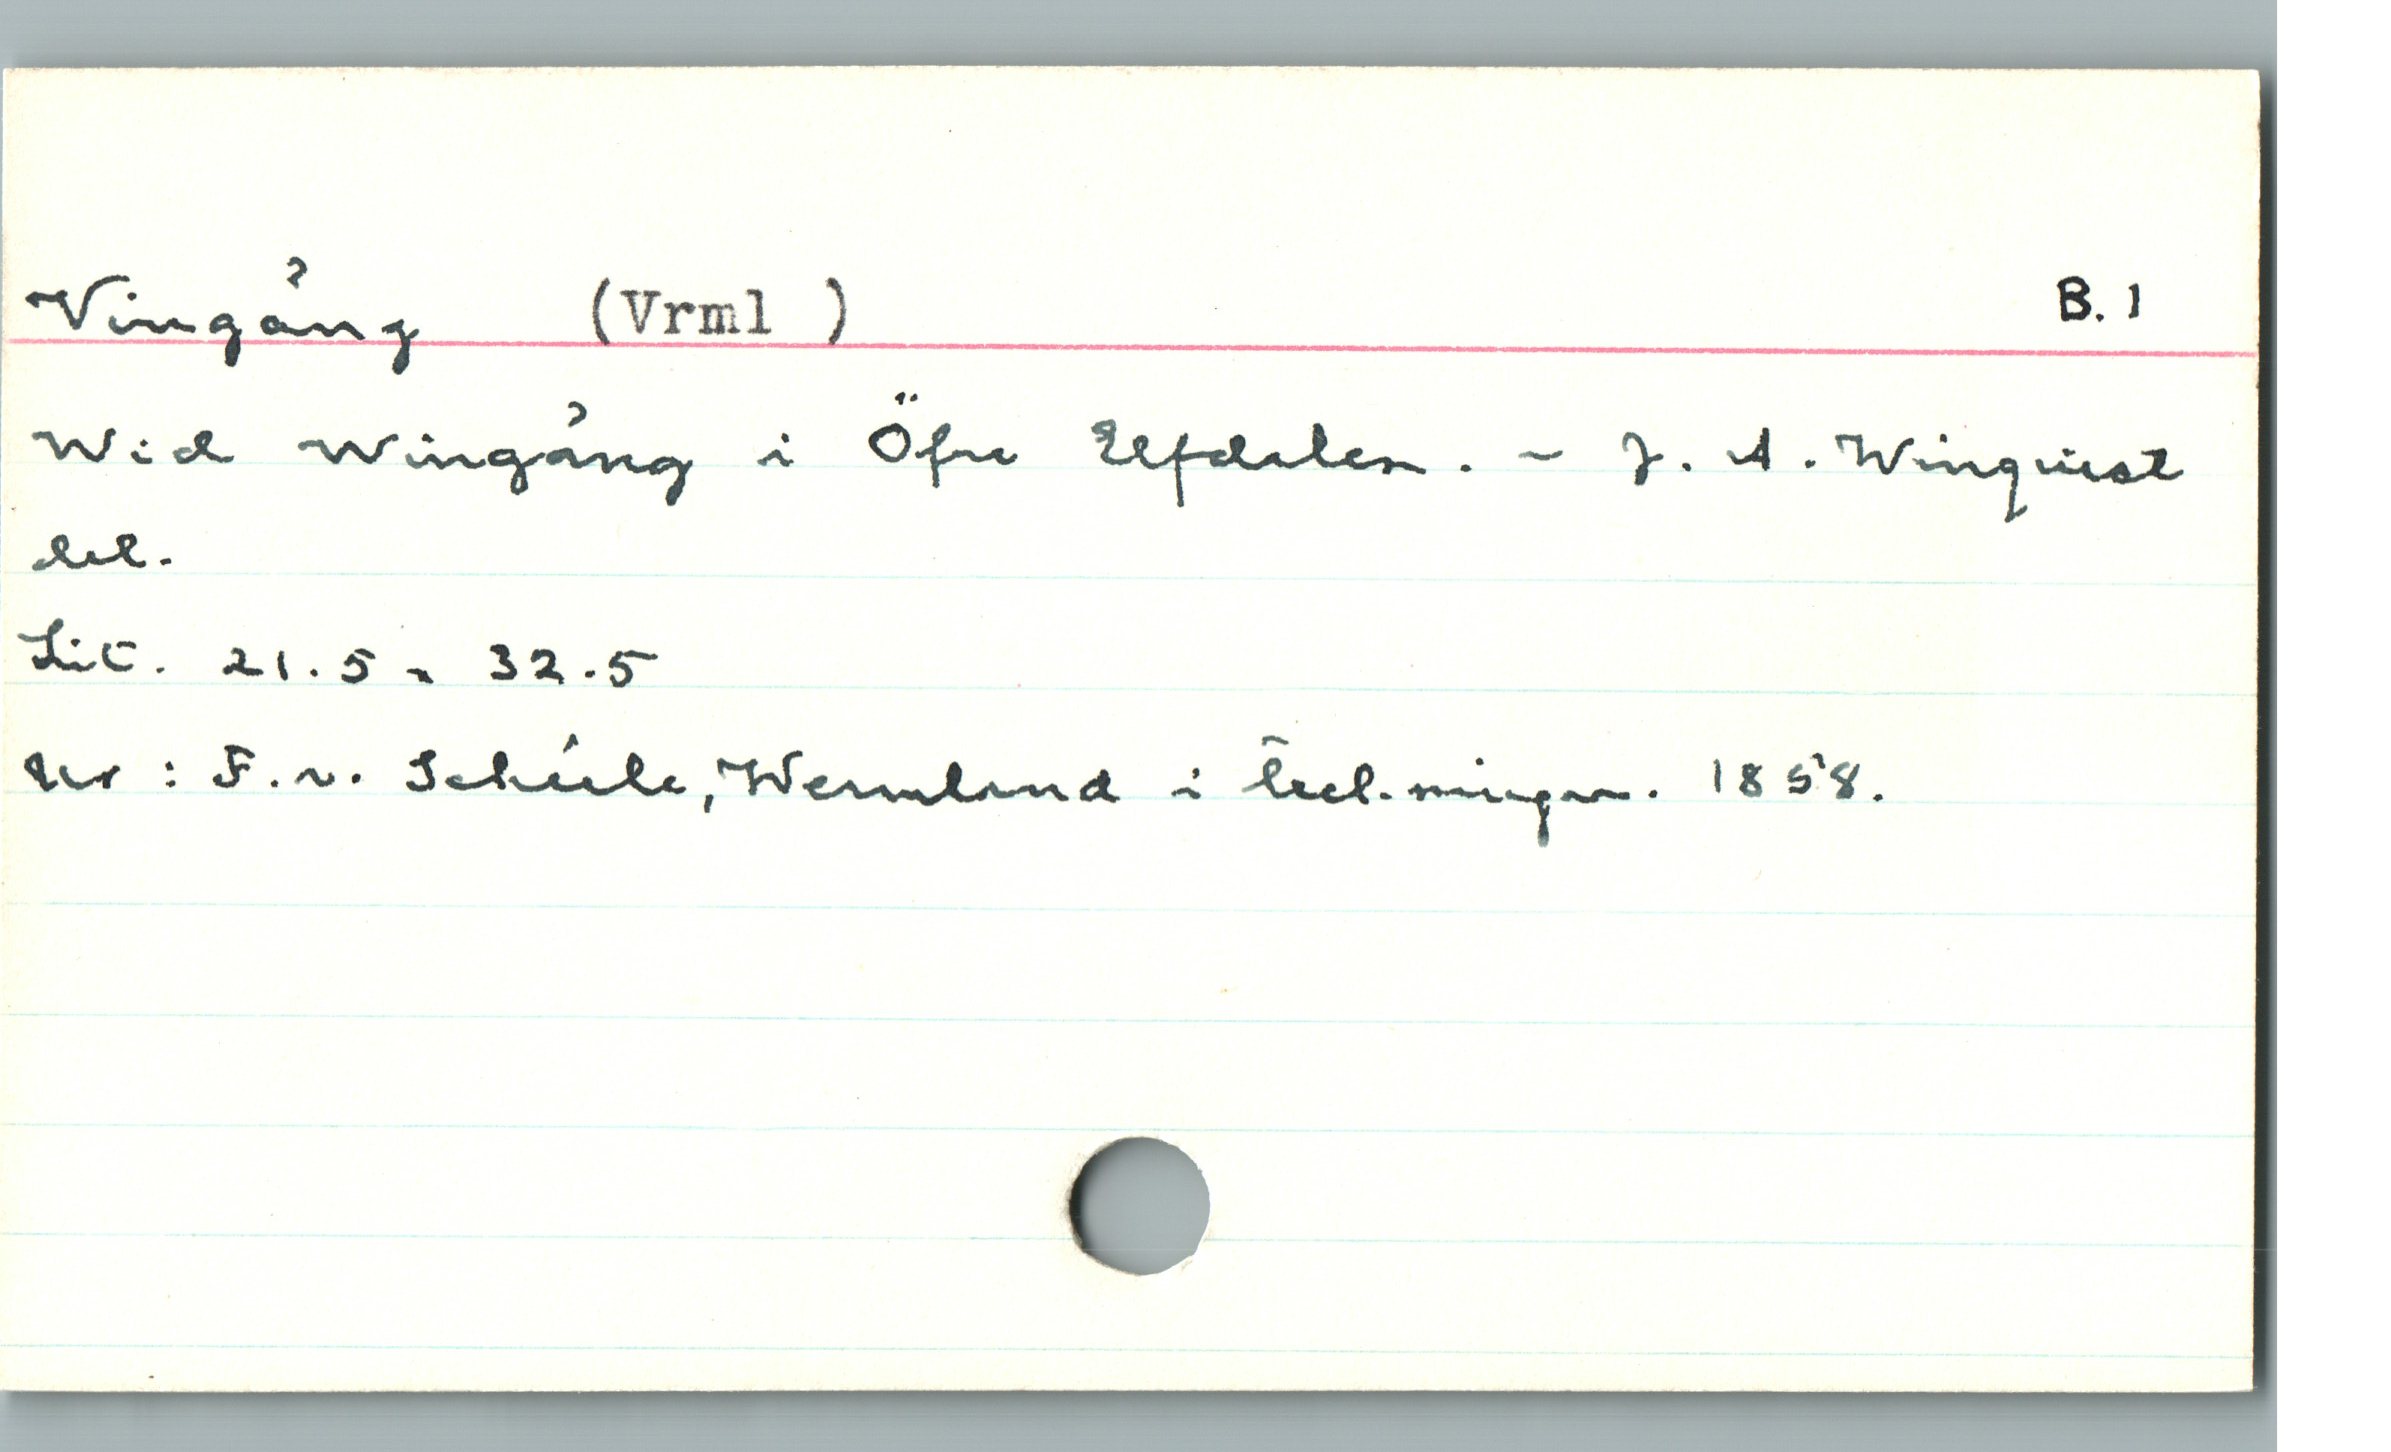 Vingång (Vrml ) B. 1
Wid Wingång i Öfre Elfdalen. - J. A. Winquist
del.
Lit. 21.5 x 32.5
Ur : F. v. Schéele, Wermland i teckningar. 1858.